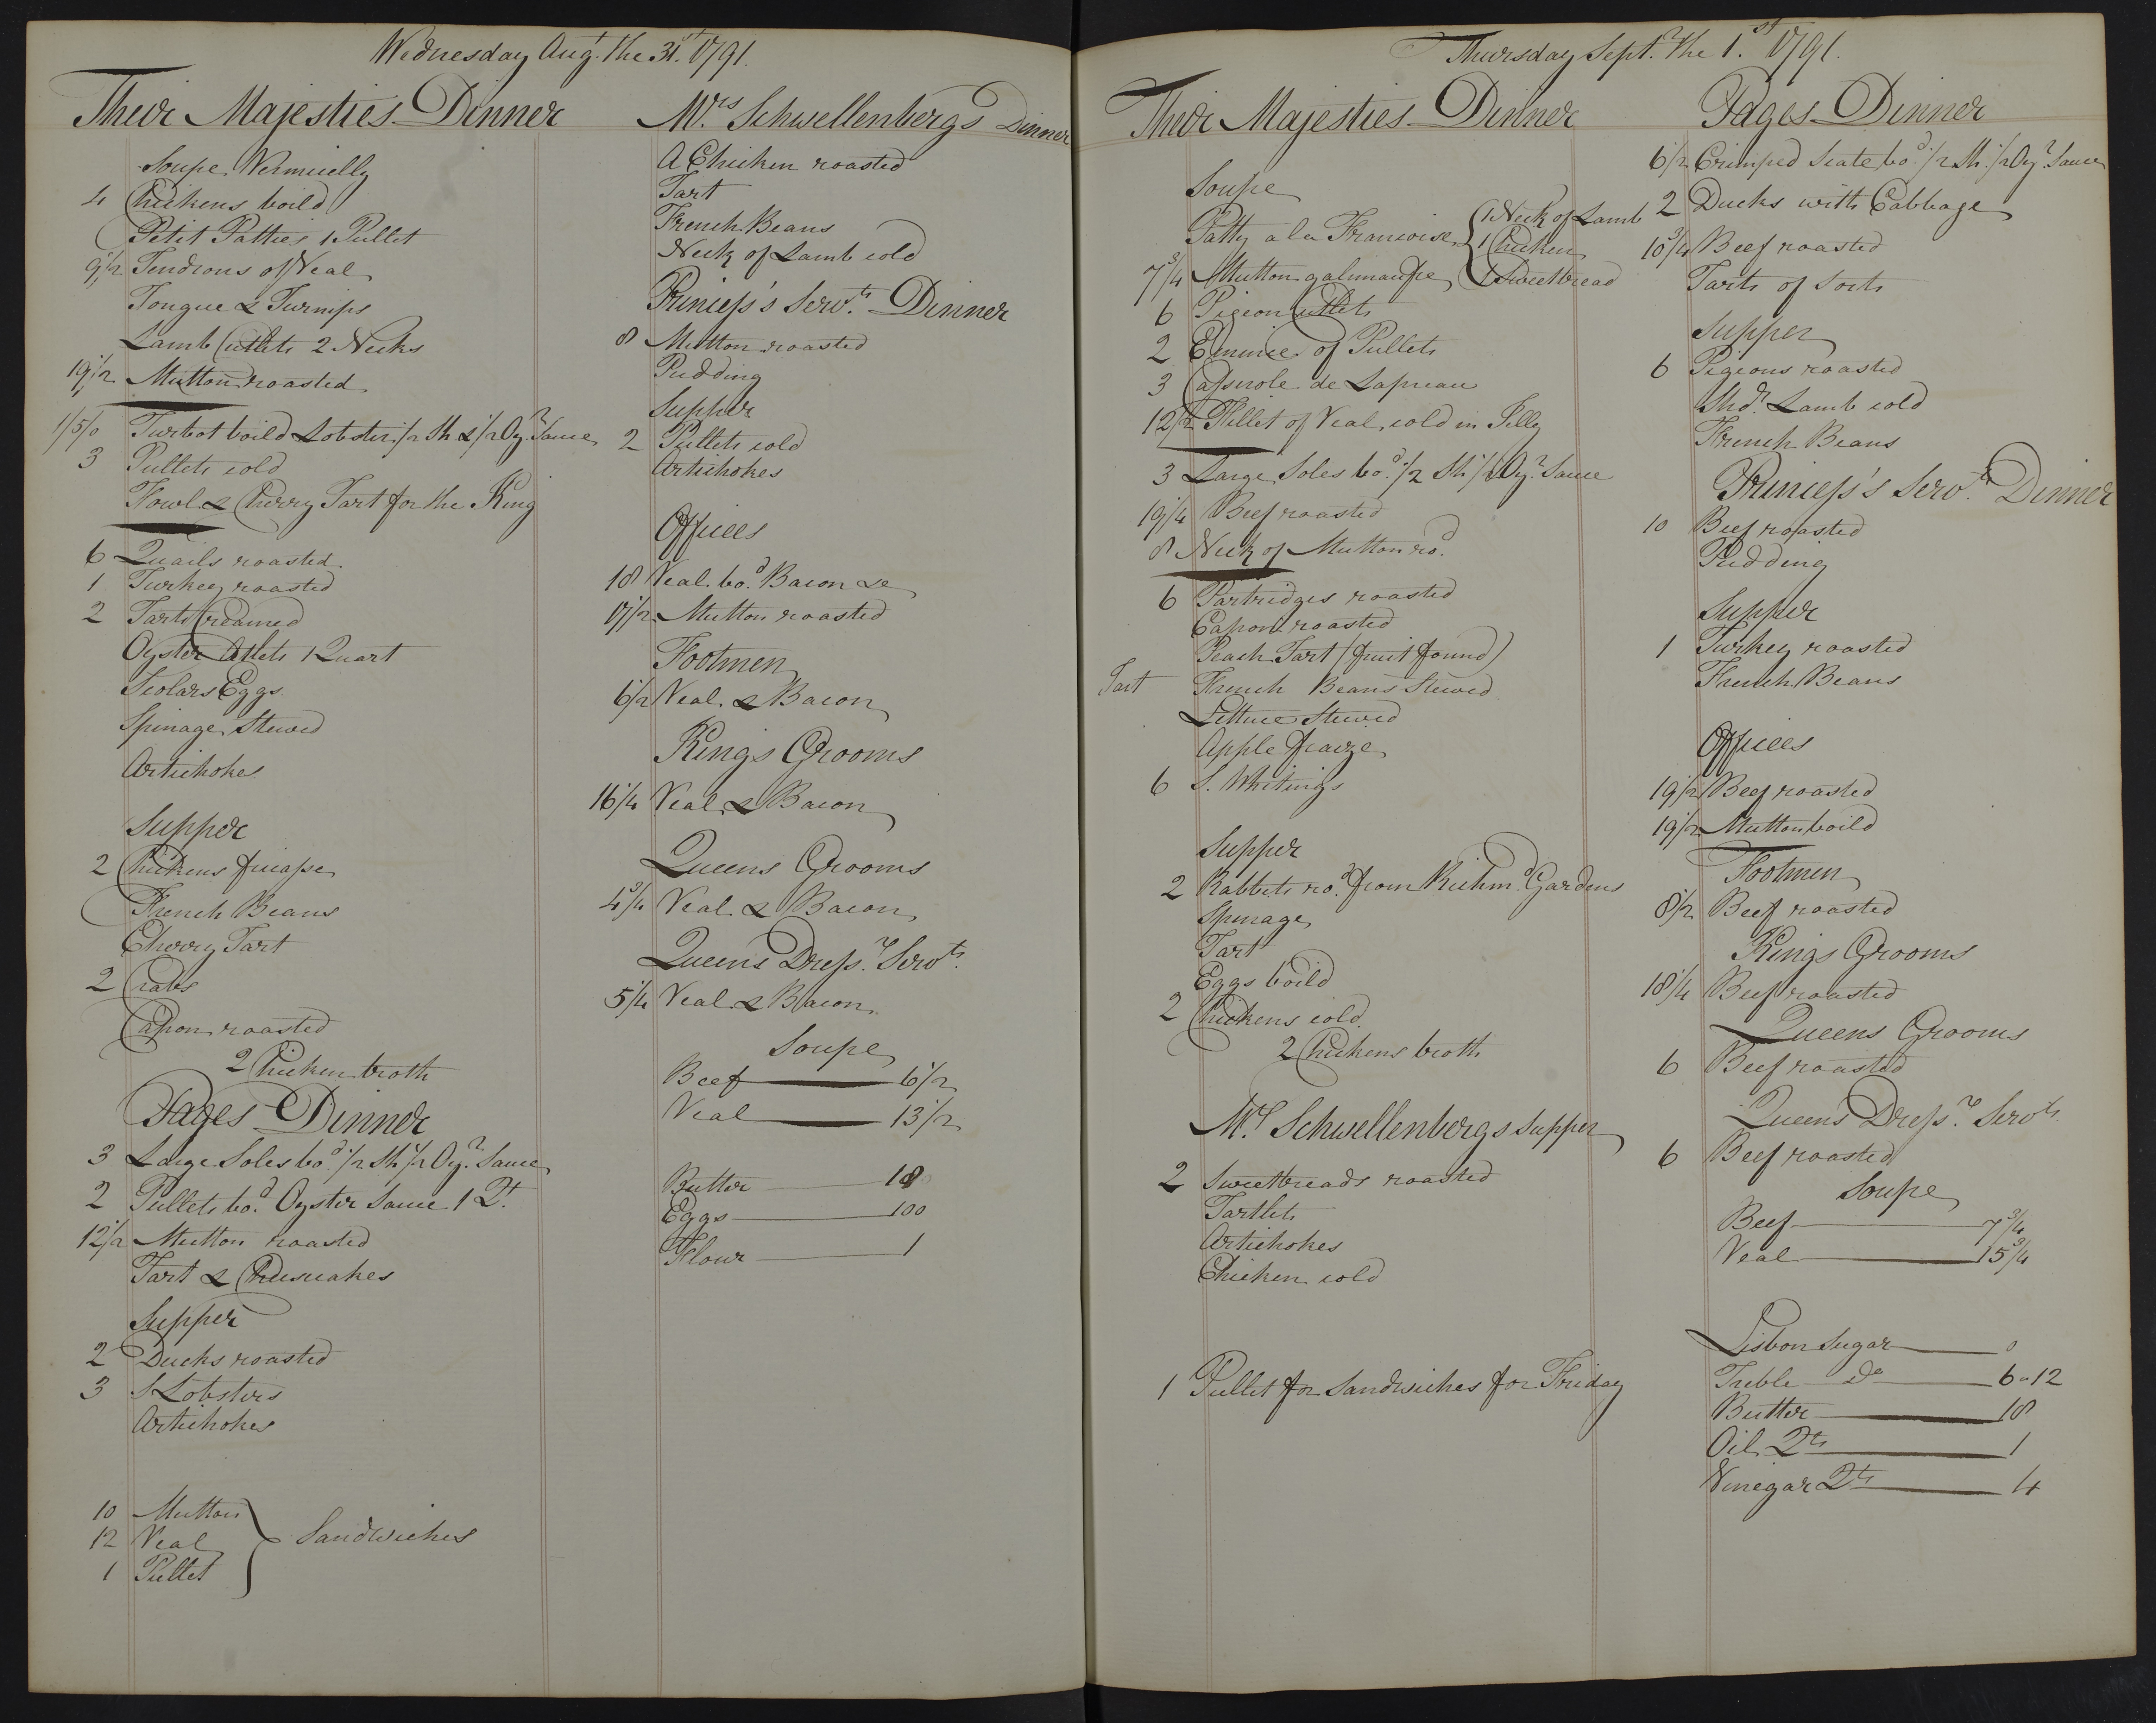 Wednesday Augt. the 31st. 1791.
Their Majesties Dinner
Soupe Vermicelly
4 Chickens boild
Petit Patties 1 Pullet
9 1/2 Tendrons of Veal
Tongue & Turnips
Lamb Cutlets 2 Necks
19 1/2 Mutton roasted
1/5/0 Turbot boild Lobster 1/2 Sh. & 1/2 Oyr. Sauce
3 Pullets cold
Fowl & Cherry Tart for the King
6 Quails roasted
1 Turkey roasted
2 Tarts Creamed
Oyster Atlets 1 Quart
Scolars Eggs
Spinage Stewed
Artichokes
Supper
2 Chickens fricasse
French Beans
Cherry Tart
2 Crabs
Capon roasted
2 Chicken broth
Pages Dinner
3 Large Soles bod. 1/2 Sh 1/2 Oyr. Sauce
2 Pullets bod. Oyster Sauce 1 Qt.
12 1/2 Mutton roasted
Tart & Cheescakes
Supper
2 Ducks roasted
3 S Lobsters
Artichokes
10 Mutton
12 Veal Sandwiches
1 Pullet
Mrs. Schwellenbergs Dinner
A Chicken roasted
Tart
French Beans
Neck of Lamb cold
Princess's Servts. Dinner
8 Mutton roasted
Pudding
Supper
2 Pullets cold
Artichokes
Offices
18 Veal bod. Bacon &c
17 1/2 Mutton roasted
Footmen
6 1/2 Veal & Bacon
Kings Grooms
16 1/4 Veal & Bacon
Queens Grooms
4 3/4 Veal & Bacon
Queens Dressr. Servts.
5 1/4 Veal & Bacon
Soupe
Beef 6 1/2
Veal 13 1/2
Butter 18
Eggs 100
Flour 1
Thursday Septr. the 1.st 1791.
Their Majesties Dinner
Soupe
Patty a la Francoise 1 Neck of Lamb
1 Chicken
7 3/4 Mutton galimausse 1 Sweetbread
6 Pigeon Cutlets
2 Emince of Pullets
3 Casserole de Lapreau
12 1/2 Fillet of Veal cold in Jelly
3 Large Soles bod. 1/2 Sh 1/2 Oyr. Sauce
19 1/4 Beef roasted
8 Neck of Mutton rod.
6 Partridges roasted
Capon roasted
Peach Tart (fruit found)
Tart French Beans Stewed
Lettuce Stewed
Apple fraize
6 S. Whitings
Supper
2 Rabbits rod. from Richmd. Gardens
Spinage
Tart
Eggs boild
2 Chickens cold
2 Chickens broth
Mrs. Schwellenbergs Supper
2 Sweetbreads roasted
Tartlets
Artichokes
Chicken cold
1 Pullet for Sandwiches for Friday
Pages Dinner
6 1/2 Crimped Scate bod. 1/2 Sh. 1/2 Oyr. Sauce
2 Ducks with Cabbage
10 3/4 Beef roasted
Tarts of Sorts
Supper
6 Pigeons roasted
Shdr. Lamb cold
French Beans
Princess's Servts. Dinner
10 Beef roasted
Pudding
Supper
1 Turkey roasted
French Beans
Offices
19 1/2 Beef roasted
19 1/2 Mutton boild
Footmen
8 1/2 Beef roasted
Kings Grooms
18 1/4 Beef roasted
Queens Grooms
6 Beef roasted
Queens Dressr. Servts.
6 Beef roasted
Soupe
Beef 7 3/4
Veal 15 3/4
Lisbon Sugar 0
Treble Do 6-12
Butter 18
Oil Qts 1
Vinegar Qts 4